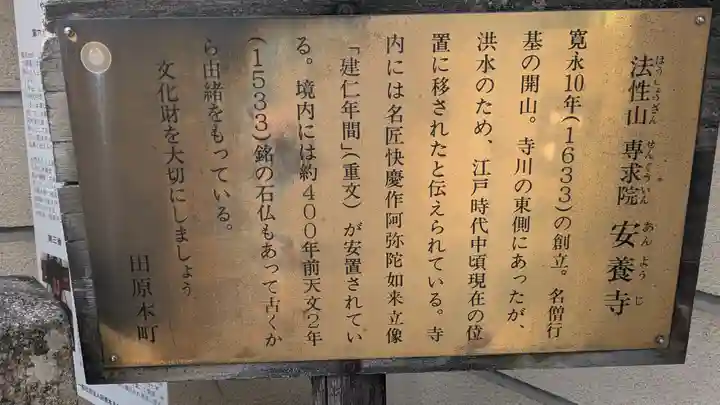 法性山 専求院 安養寺
ほうしょうざん せんぐういん あんようじ
寛永10年(1633)の創立。名僧行
基の開山。寺川の東側にあったが、
洪水のため、江戸時代中頃現在の位
置に移されたと伝えられている。寺
内には名匠快慶作阿弥陀如来立像
「建仁年間」(重文)が安置されてい
る。境内には約400年前天文2年
(1533)銘の石仏もあって古くか
ら由緒をもっている。
文化財を大切にしましょう
田原本町